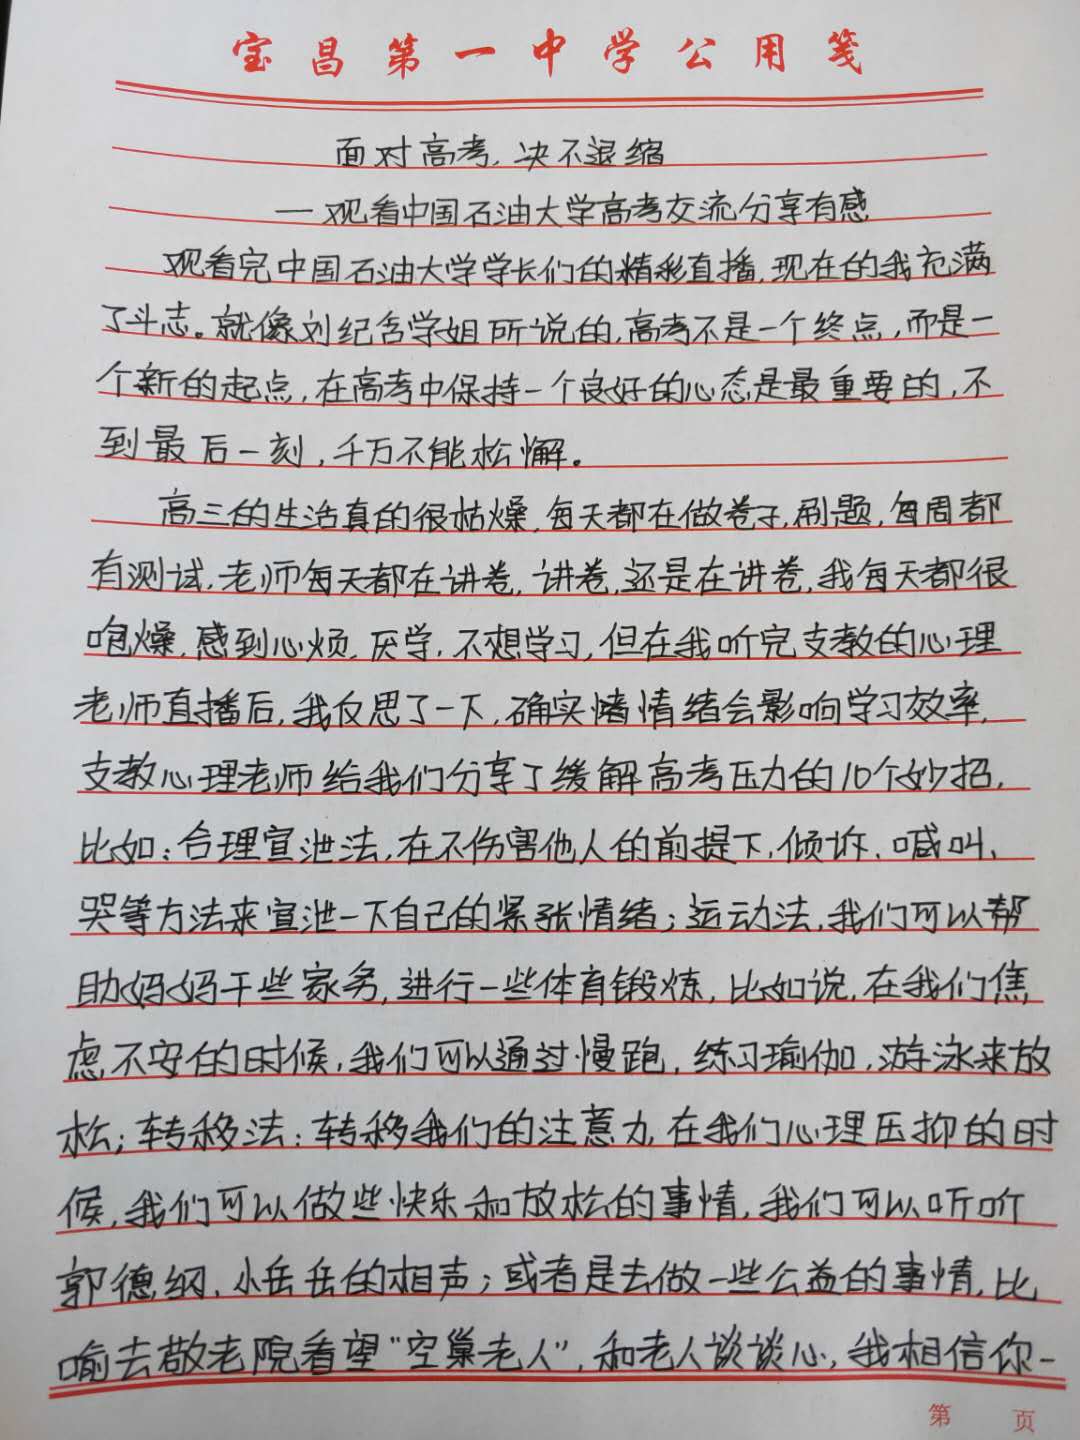 宝昌第一中学公用笺
面对高考，决不退缩
——观看中国石油大学高考交流分享有感
观看完中国石油大学学长们的精彩直播，现在的我充满
了斗志。就像刘纪含学姐所说的，高考不是一个终点，而是一
个新的起点，在高考中保持一个良好的心态是最重要的，不
到最后一刻，千万不能松懈。
高三的生活真的很枯燥，每天都在做卷子，刷题，每周都
有测试，老师每天都在讲卷，讲卷，还是在讲卷，我每天都很
咆燥，感到心烦，厌学，不想学习，但在我听完支教的心理
老师直播后，我仅思了一下，确实情绪会影响学习效率，
支教心理老师给我们分享了缓解高考压力的10个妙招，
比如：合理宣泄法，在不伤害他人的前提下，倾诉、喊叫、
哭等方法来宣泄一下自己的紧张情绪；运动法，我们可以帮
助妈妈干些家务，进行一些体育锻炼，比如说，在我们焦
虑不安的时候，我们可以通过慢跑，练习瑜伽，游泳来放
松；转移法：转移我们的注意力，在我们心理压抑的时
候，我们可以做些快乐和放松的事情，我们可以听听
郭德纲、小岳岳的相声；或者是去做一些公益的事情，比
喻去敬老院看望“空巢老人”，和老人谈谈心，我相信你一
第 页